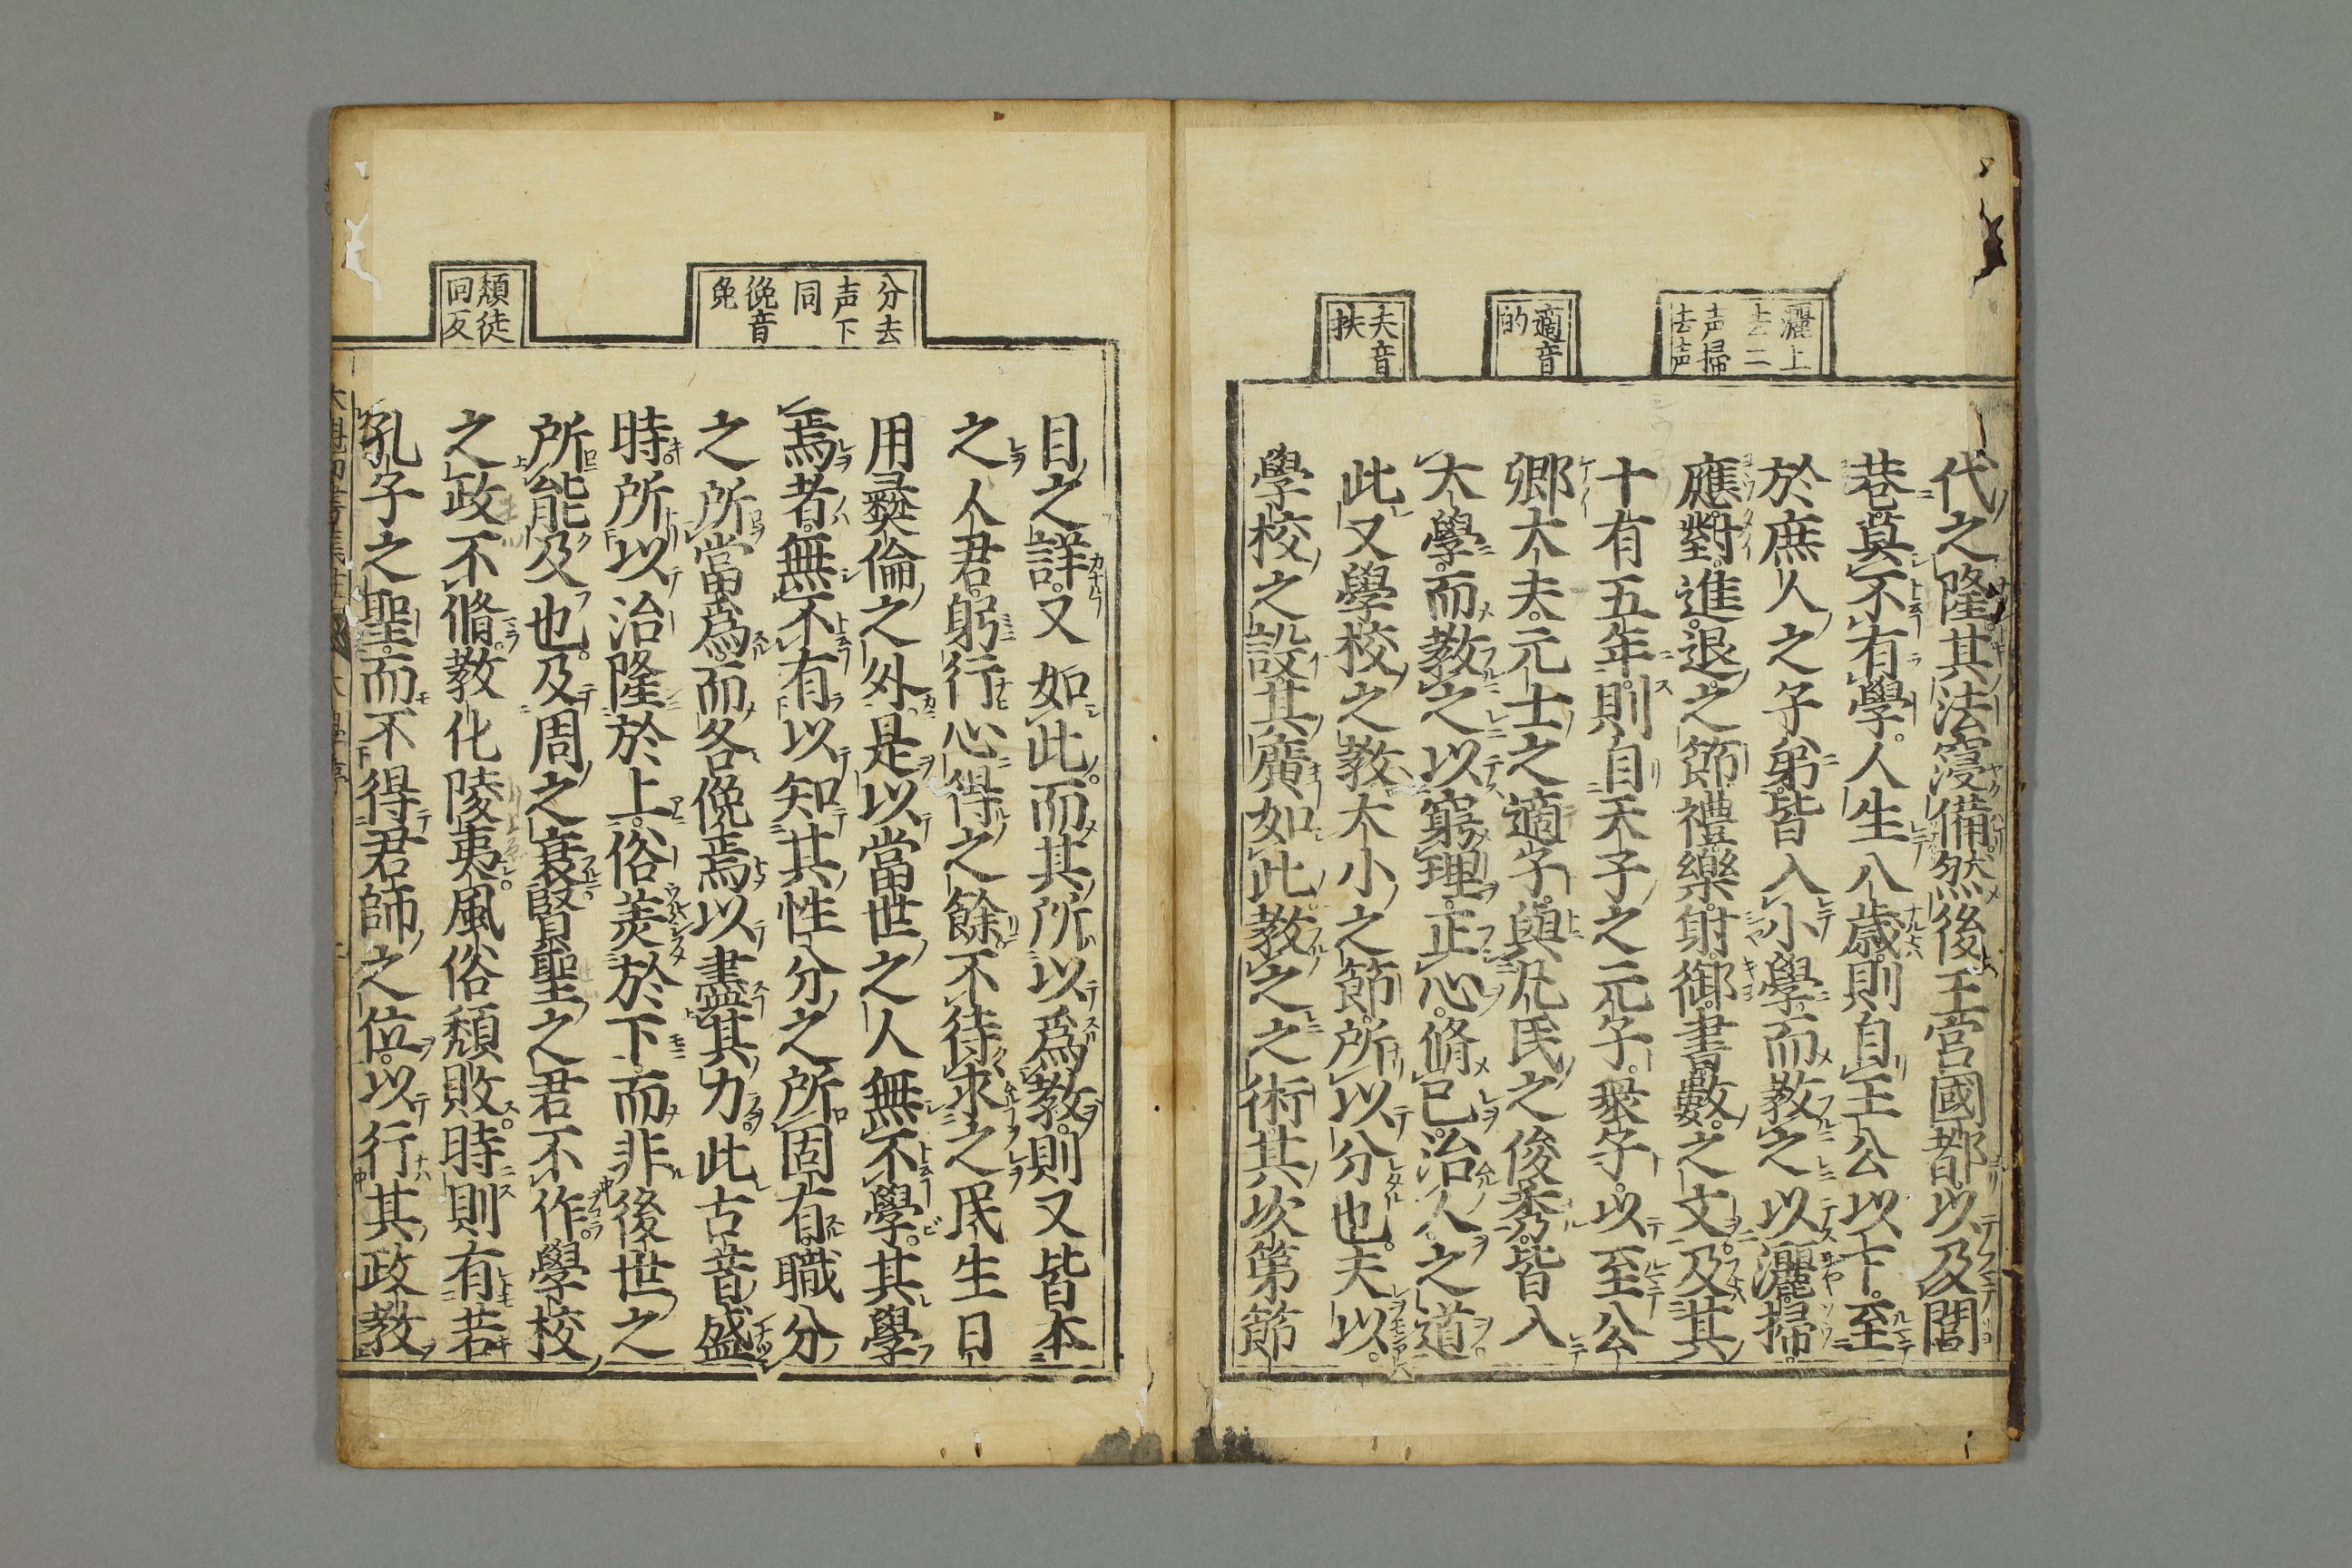 灑上
去二
声掃
去声
適音
的
夫音
扶
代之隆其法寖備然後王宮國都以及閭
巷莫不有學人生八歳則自王公以下至
於庶人之子弟皆入小學而教之以灑掃
應對進退之節禮樂射御書數之文及其
十有五年則自天子之元子衆子以至公
卿大夫元士之適子與凡民之俊秀皆入
大學而教之以窮理正心脩己治人之道
此又學校之教大小之節所以分也夫以
學校之設其廣如此教之之術其次第節
分去
声下
同
俛音
免
頽徒
回反
目之詳又如此而其所以爲教則又皆本
之人君躬行心得之餘不待求之民生日
用彝倫之外是以當世之人無不學其學
焉者無不有以知其性分之所固有職分
之所當爲而各俛焉以盡其力此古昔盛
時所以治隆於上俗美於下而非後世之
所能及也及周之衰賢聖之君不作學校
之政不脩教化陵夷風俗頽敗時則有若
孔子之聖而不得君師之位以行其政教